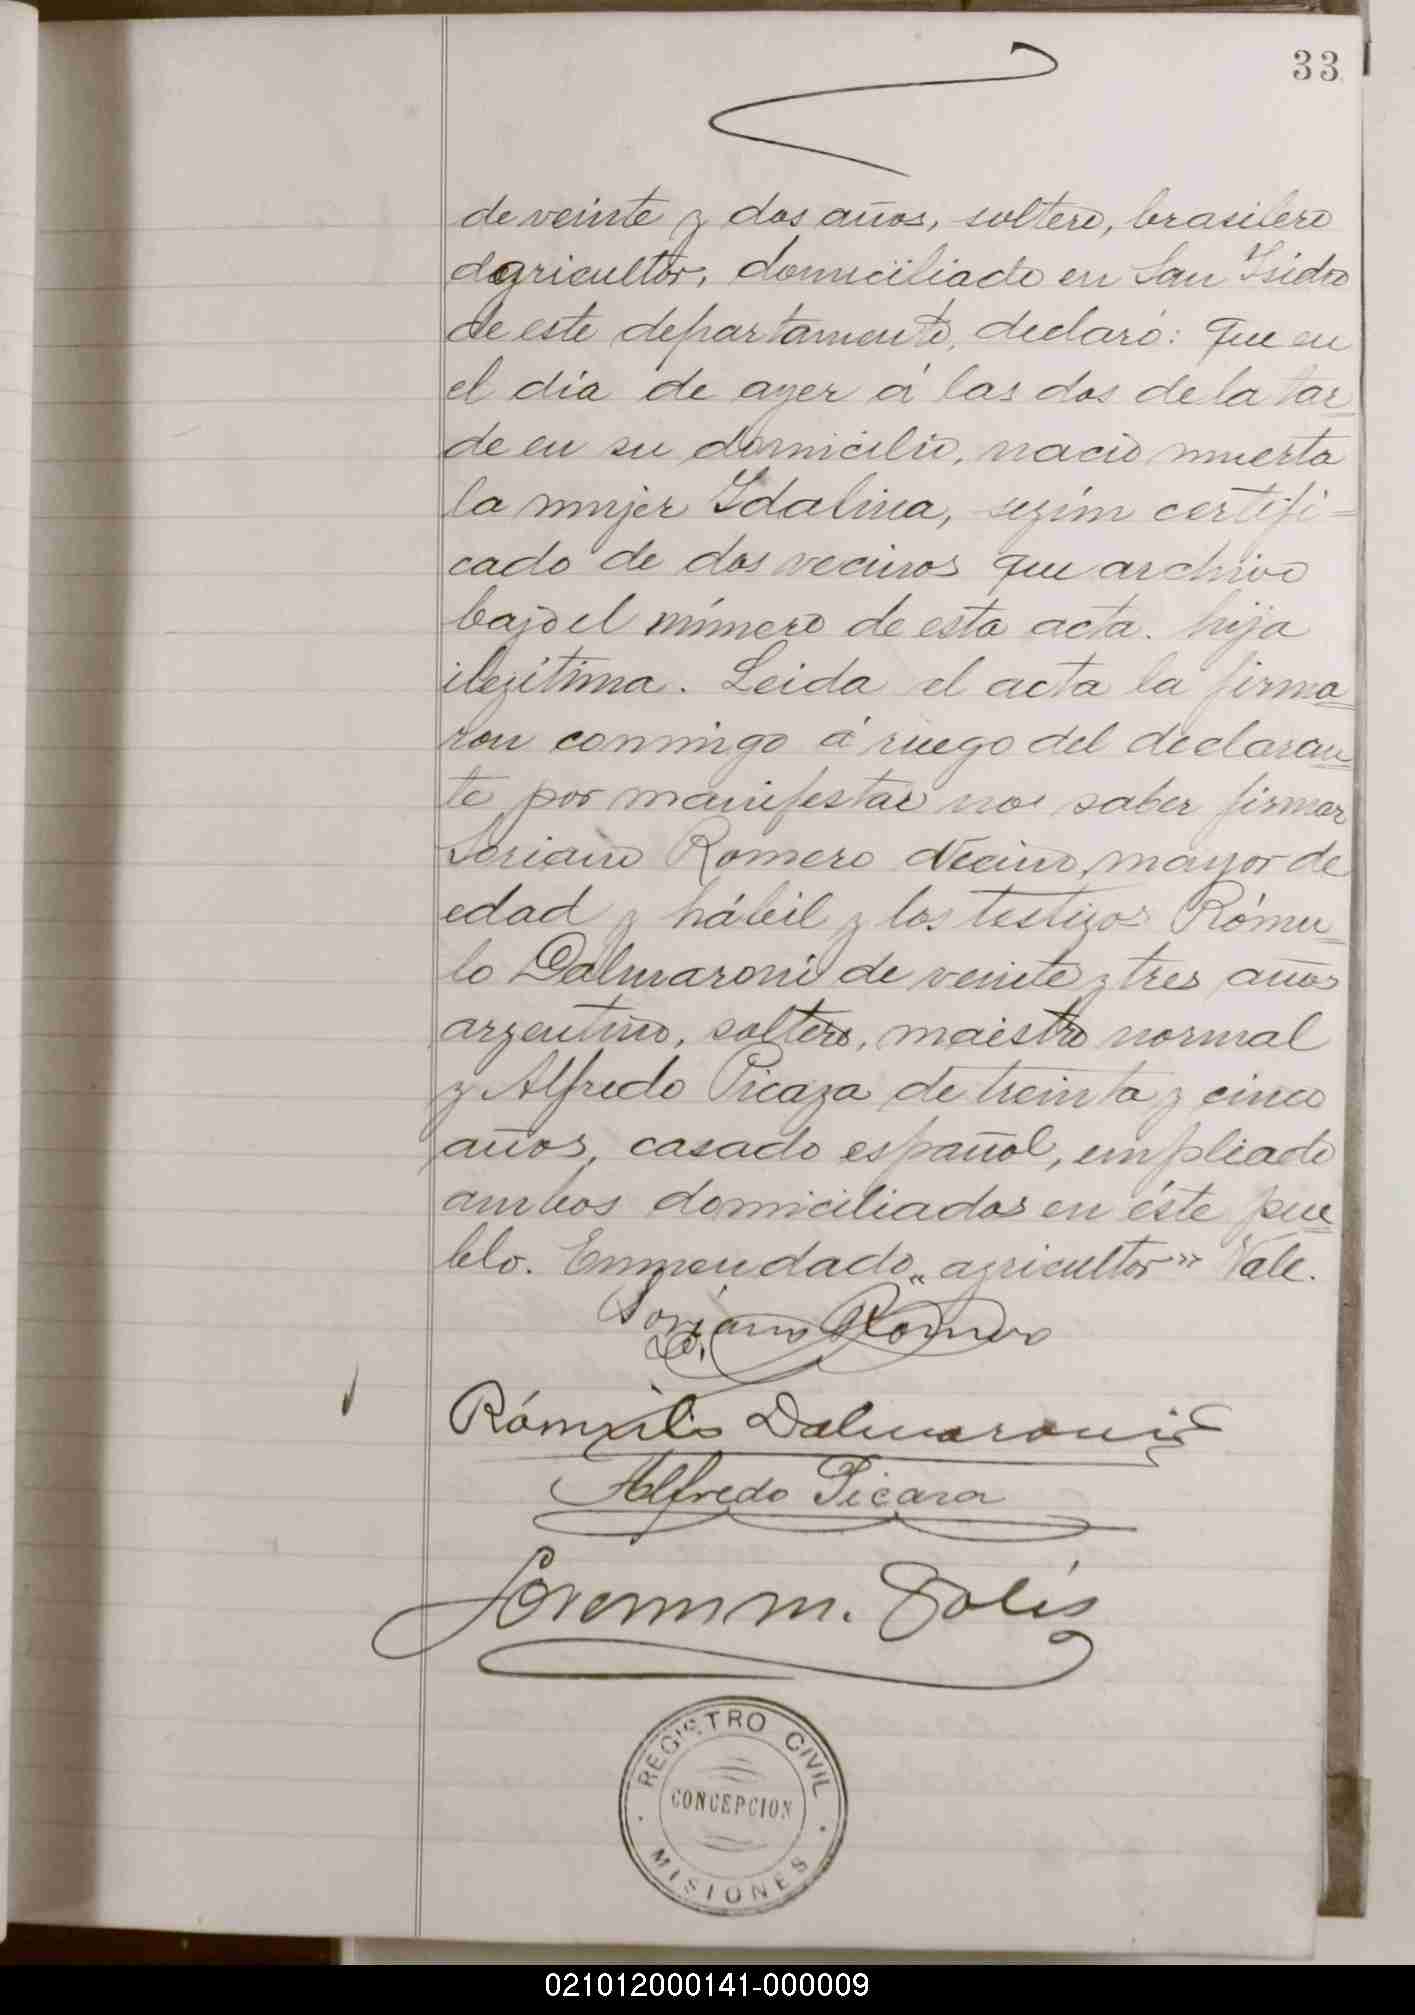 33
de veinte y dos años, soltero, brasilero
agricultor, domiciliado en San Isidro
de este departamento, declaró: que en
el día de ayer á las dos de la tar
de en su domicilio, nació muerta
la mujer Idalina, según certifi=
cado de dos vecinos que archivo
bajo el número de esta acta. hija
ilegítima. Leida el acta la firma
ron conmigo á ruego del declaran
te por manifestar no saber firmar
Soriano Romero vecino, mayor de
edad y hábil y los testigos Rómu
lo Dalmaroni de veinte y tres años
argentino, soltero, maistro normal
y Alfredo Picaza de treinta y cinco
años, casado español, empliado
ambos domiciliados en éste pue
blo. Enmendado „agricultor” Vale.
Soriano Romero
Rómulo Dalmaroni
Alfredo Picaza
m. Solís
REGISTRO CIVIL
CONCEPCION
MISIONES
021012000141-000009